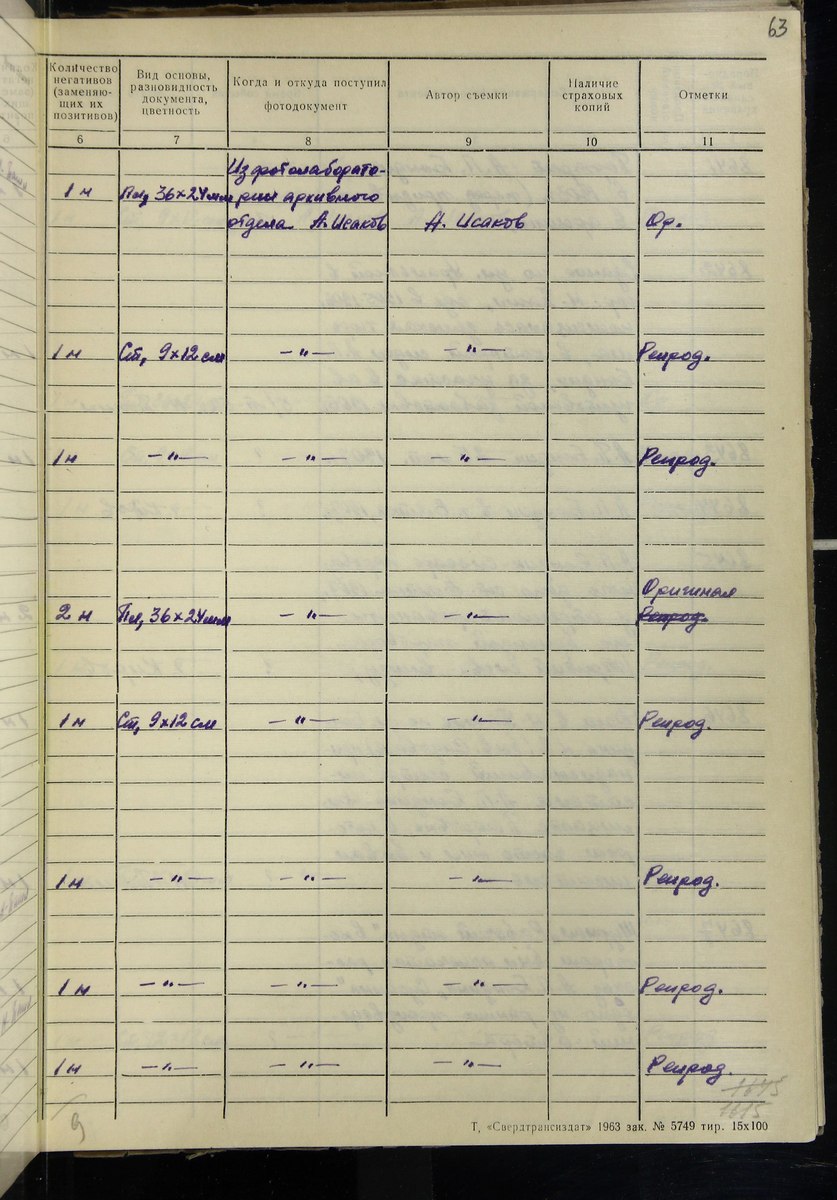 63
Количество негативов (заменяющих их позитивов)
Вид основы, разновидность документа, цветность
Когда и откуда поступил фотодокумент
Автор съемки
Наличие страховых копий
Отметки
6 7 8 9 10 11
Из фотолаборато-
1 н Пл, 36×24мм рии архивного
отдела А. Исаков А. Исаков Ор.
1 н Ст, 9×12 см —"— —"— Репрод.
1 н —"— —"— —"— Репрод.
Оригинал
2 н Пл, 36×24мм —"— —"— Репрод.
1 н Ст, 9×12 см —"— —"— Репрод.
1 н —"— —"— —"— Репрод.
1 н —"— —"— —"— Репрод.
1 н —"— —"— —"— Репрод.
9
1615
Т, «Свердтрансиздат» 1963 зак. № 5749 тир. 15х100